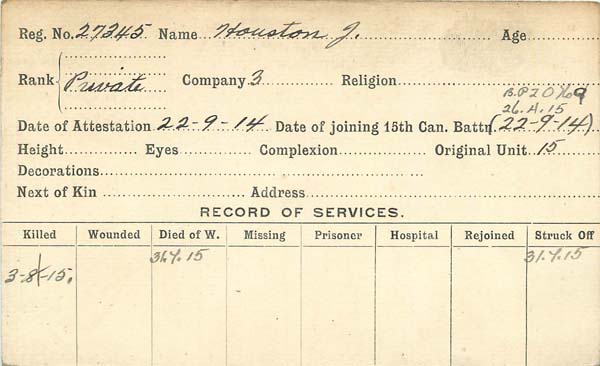 Reg. No. 27245 Name Houston J. Age
Rank Private Company 3 Religion
26.4.15
Date of Attestation 22-9-14 Date of joining 15th Can. Battn (22-9-14)
Height Eyes Complexion Original Unit 15
Decorations
Next of Kin Address
RECORD OF SERVICES.
Killed Wounded Died of W. Missing Prisoner Hospital Rejoined Struck Off
31.7.15 31.7.15
3-8-15.